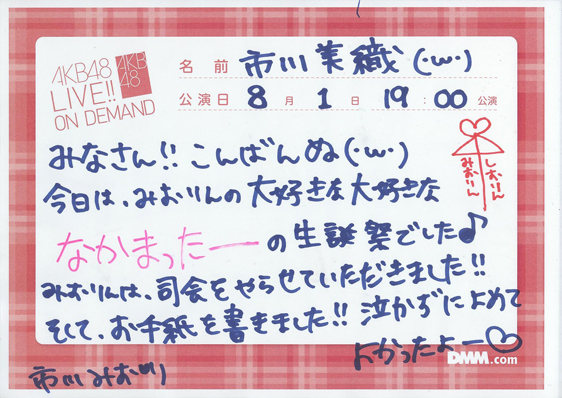 AKB48
LIVE!!
ON DEMAND
AKB
48
名前 市川美織(・ω・)
公演日 8月1日 19:00公演
みなさん!!こんばんぬ(・ω・)
今日は、みおりんの大好きな大好きな
しおりん
みおりん
なかまったーの生誕祭でした♪
みおりんは、司会をやらせていただきました!!
そして、お手紙を書きました!!泣かずによめて
よかったよー♡
DMM.com
市川みおり